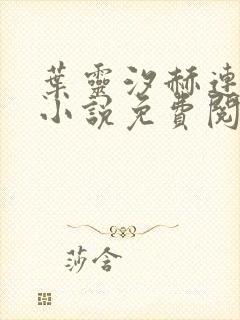 葉靈汐赫連
小說免費閱
莎含